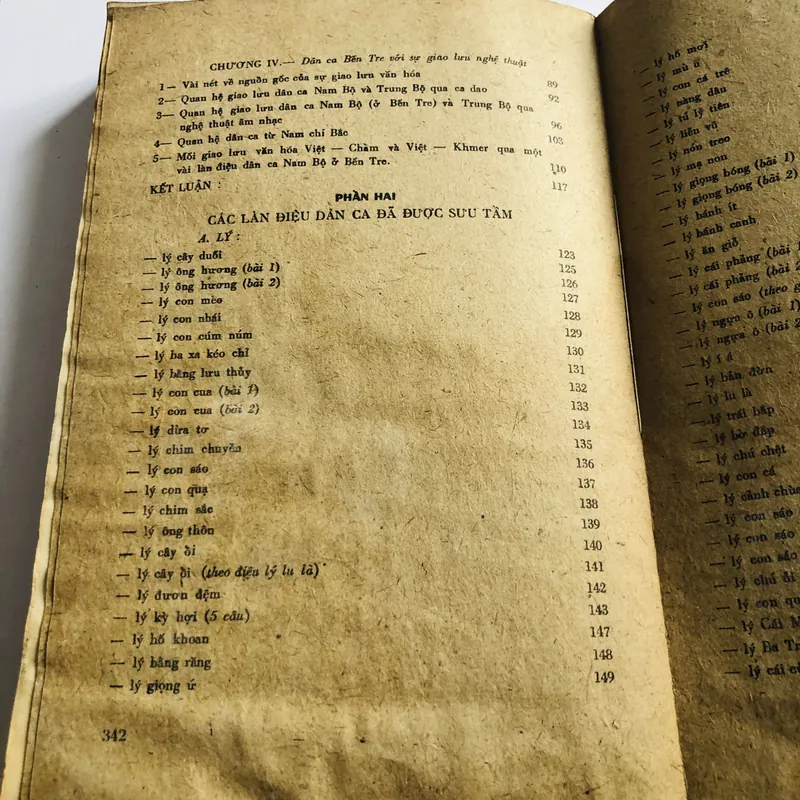 CHƯƠNG IV.— Dân ca Bến Tre với sự giao lưu nghệ thuật
1— Vài nét về nguồn gốc của sự giao lưu văn hóa 89
2— Quan hệ giao lưu dân ca Nam Bộ và Trung Bộ qua ca dao 92
3— Quan hệ giao lưu dân ca Nam Bộ (ở Bến Tre) và Trung Bộ qua
nghệ thuật âm nhạc 96
4— Quan hệ dân ca từ Nam chí Bắc 103
5— Mối giao lưu văn hóa Việt — Chàm và Việt — Khmer qua một
vài làn điệu dân ca Nam Bộ ở Bến Tre. 110
KẾT LUẬN : 117
PHẦN HAI
CÁC LÀN ĐIỆU DÂN CA ĐÃ ĐƯỢC SƯU TẦM
A. LÝ :
— lý cây duối 123
— lý ông hương (bài 1) 125
— lý ông hương (bài 2) 126
— lý con mèo 127
— lý con nhái 128
— lý con cúm núm 129
— lý ba xa kéo chỉ 130
— lý bằng lưu thủy 131
— lý con cua (bài 1) 132
— lý con cua (bài 2) 133
— lý dừa tơ 134
— lý chim chuyền 135
— lý con sáo 136
— lý con quạ 137
— lý chim sắc 138
— lý ông thôn 139
— lý cây ổi 140
— lý cây ổi (theo điệu lý lu là) 141
— lý đươn đệm 142
— lý kỳ hợi (5 câu) 143
— lý hố khoan 147
— lý bằng răng 148
— lý giọng ứ 149
342
— lý hố mơi
— lý mù u
— lý con cá trê
— lý nàng dâu
— lý tú lý tiên
— lý liễn vũ
— lý nồn treo
— lý mạ non
— lý giọng bóng (bài 1)
— lý giọng bóng (bài 2)
— lý bánh ít
— lý bánh canh
— lý ăn giỗ
— lý cái phảng (bài 1)
— lý cái phảng (bài 2
— lý con sáo (theo
— lý ngựa ô (bài 1)
— lý ngựa ô (bài 2
— lý í á
— lý bần đờn
— lý lu là
— lý trái bắp
— lý bờ đắp
— lý chú chệt
— lý con cá
— lý cảnh chùa
— lý con sáo
— lý con sáo
— lý con sáo
— lý chú ổi
— lý con qu
— lý Cái M
— lý Ba Tr
— lý cái c